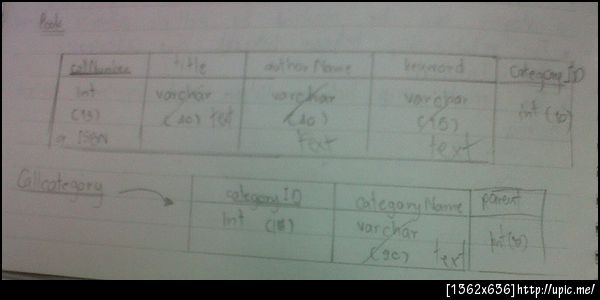 Book
callNumber title authorName keyword categoryID
int varchar varchar varchar int (10)
(13) (20) text (10) (15)
ISBN text text
Callcategory categoryID categoryName parent
int (10) varchar int (10)
(20) text
[1362x636]http://upic.me/